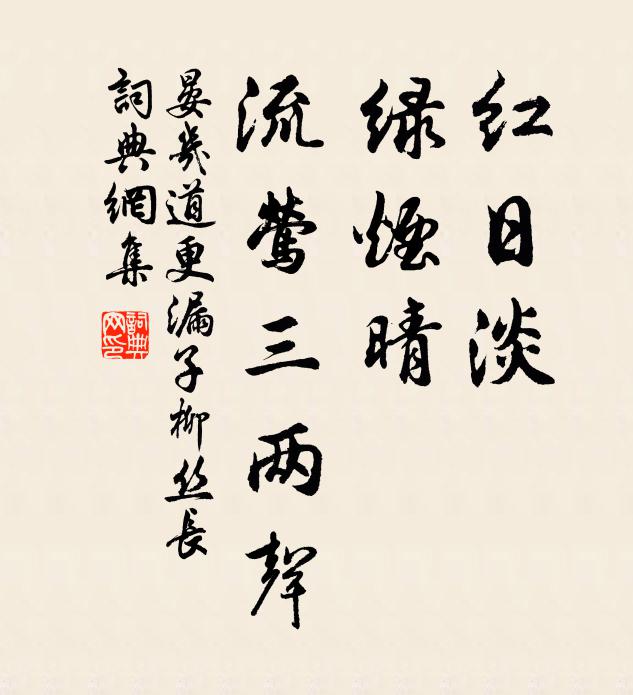 红日淡
绿煙晴
流莺三两聲
晏幾道更漏子柳丝長
詞典網集
詞典网印